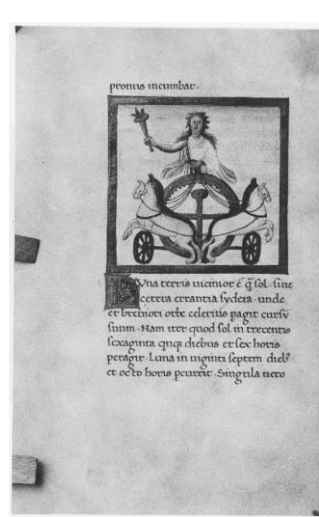 pronus incumbat.
LVna terris uicinior ē q̄ sol. siue
cetera errantia sydera. unde
et breuiori orbe celerius pagit cursū
suum. Nam iter quod sol in trecentis
sexaginta quīqȝ diebus et sex horis
peragit. Luna in uiginti septem dieb;
et octo horis pcurrit. Singula uero